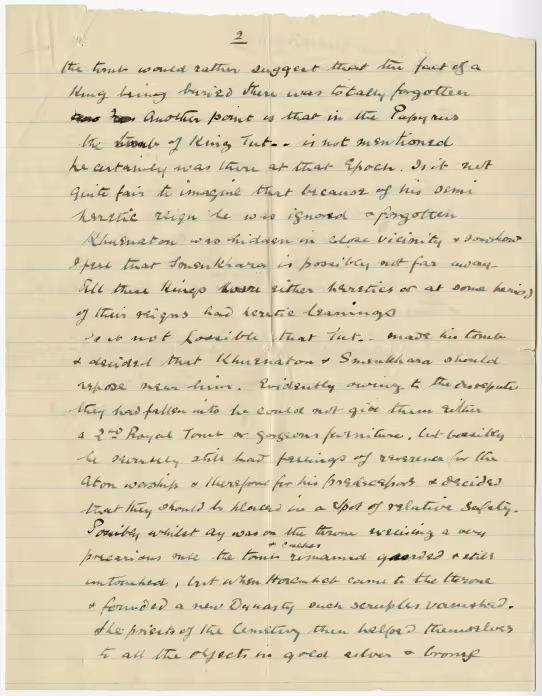 2
the tomb would rather suggest that the fact of a
King being buried there was totally forgotten
Another point is that in the Papyrus
the tomb of King Tut.. is not mentioned
he certainly was there at that Epoch. Is it not
quite fair to imagine that because of his semi
heretic reign he was ignored & forgotten
Khuenaton was hidden in close vicinity &
I feel that Smenkhara is possibly not far away.
All these Kings were either heretics or at some period
of their reigns had heretic leanings
Is it not possible that Tut.. made his tomb
& decided that Khuenaton & Smenkhara should
repose near him. Evidently owing to the disrepute
they had fallen into he could not give them either
a 2nd Royal Tomb or gorgeous furniture, but possibly
he secretly still had feelings of reverence for the
Aton worship & therefore for his predecessors & decided
that they should be placed in a spot of relative safety.
Possibly whilst Ay was on the throne exercising a very
precarious rule the tombs & caches remained guarded & still
untouched, but when Horemheb came to the throne
& founded a new Dynasty such scruples vanished.
The priests of the Cemetery then helped themselves
to all the objects in gold silver & bronze